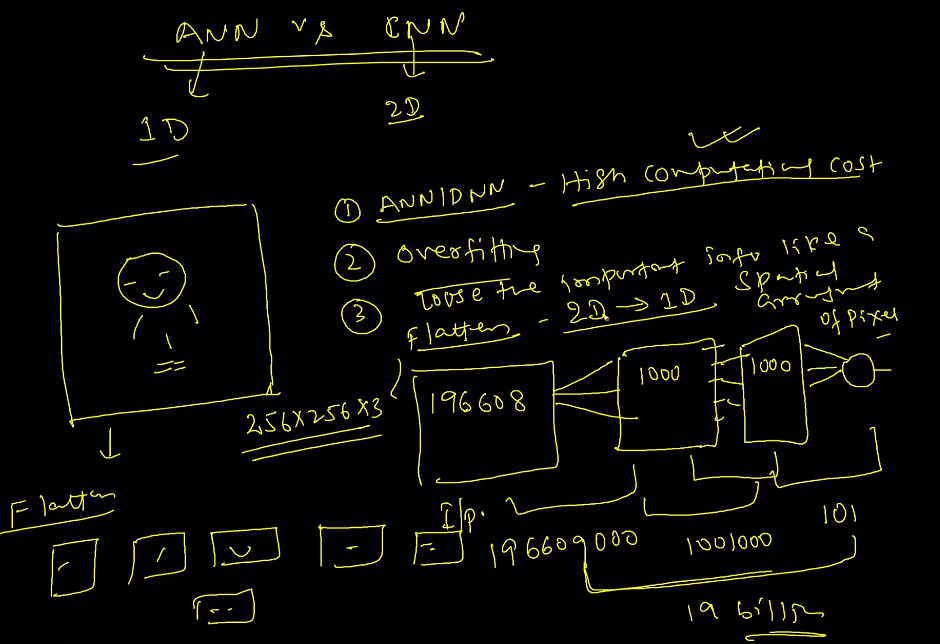 ANN vs CNN
1D
2D
① ANN/DNN - High computational cost
② overfitting
③ loose the important info like a
spatial
arrangment
of pixel
Flatten - 2D → 1D
256×256×3
196608
1000
1000
Flatten
I/p.
196609000
1001000
101
19 billion